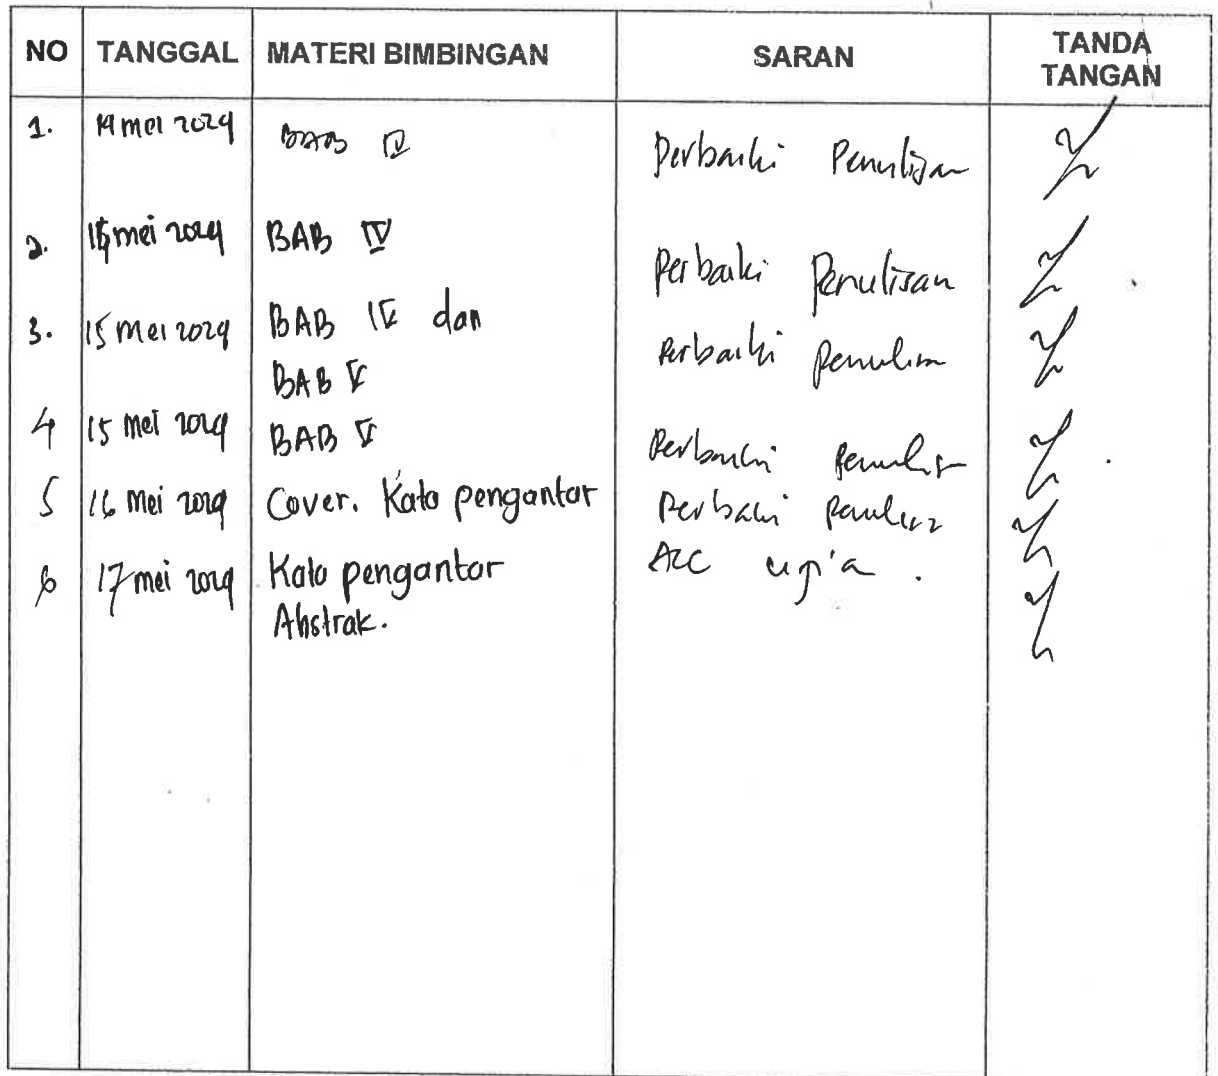 NO TANGGAL MATERI BIMBINGAN SARAN TANDA TANGAN
1. 14 mei 2024 BAB IV Perbaiki Penulisan
2. 15 mei 2024 BAB IV Perbaiki Penulisan
3. 15 mei 2024 BAB IV dan Perbaiki penulisan
BAB V
4 15 mei 2024 BAB V Perbaiki penulisan
5 16 mei 2024 Cover. Kata pengantar Perbaiki penulisan
6 17 mei 2024 Kata pengantar ACC
Abstrak.